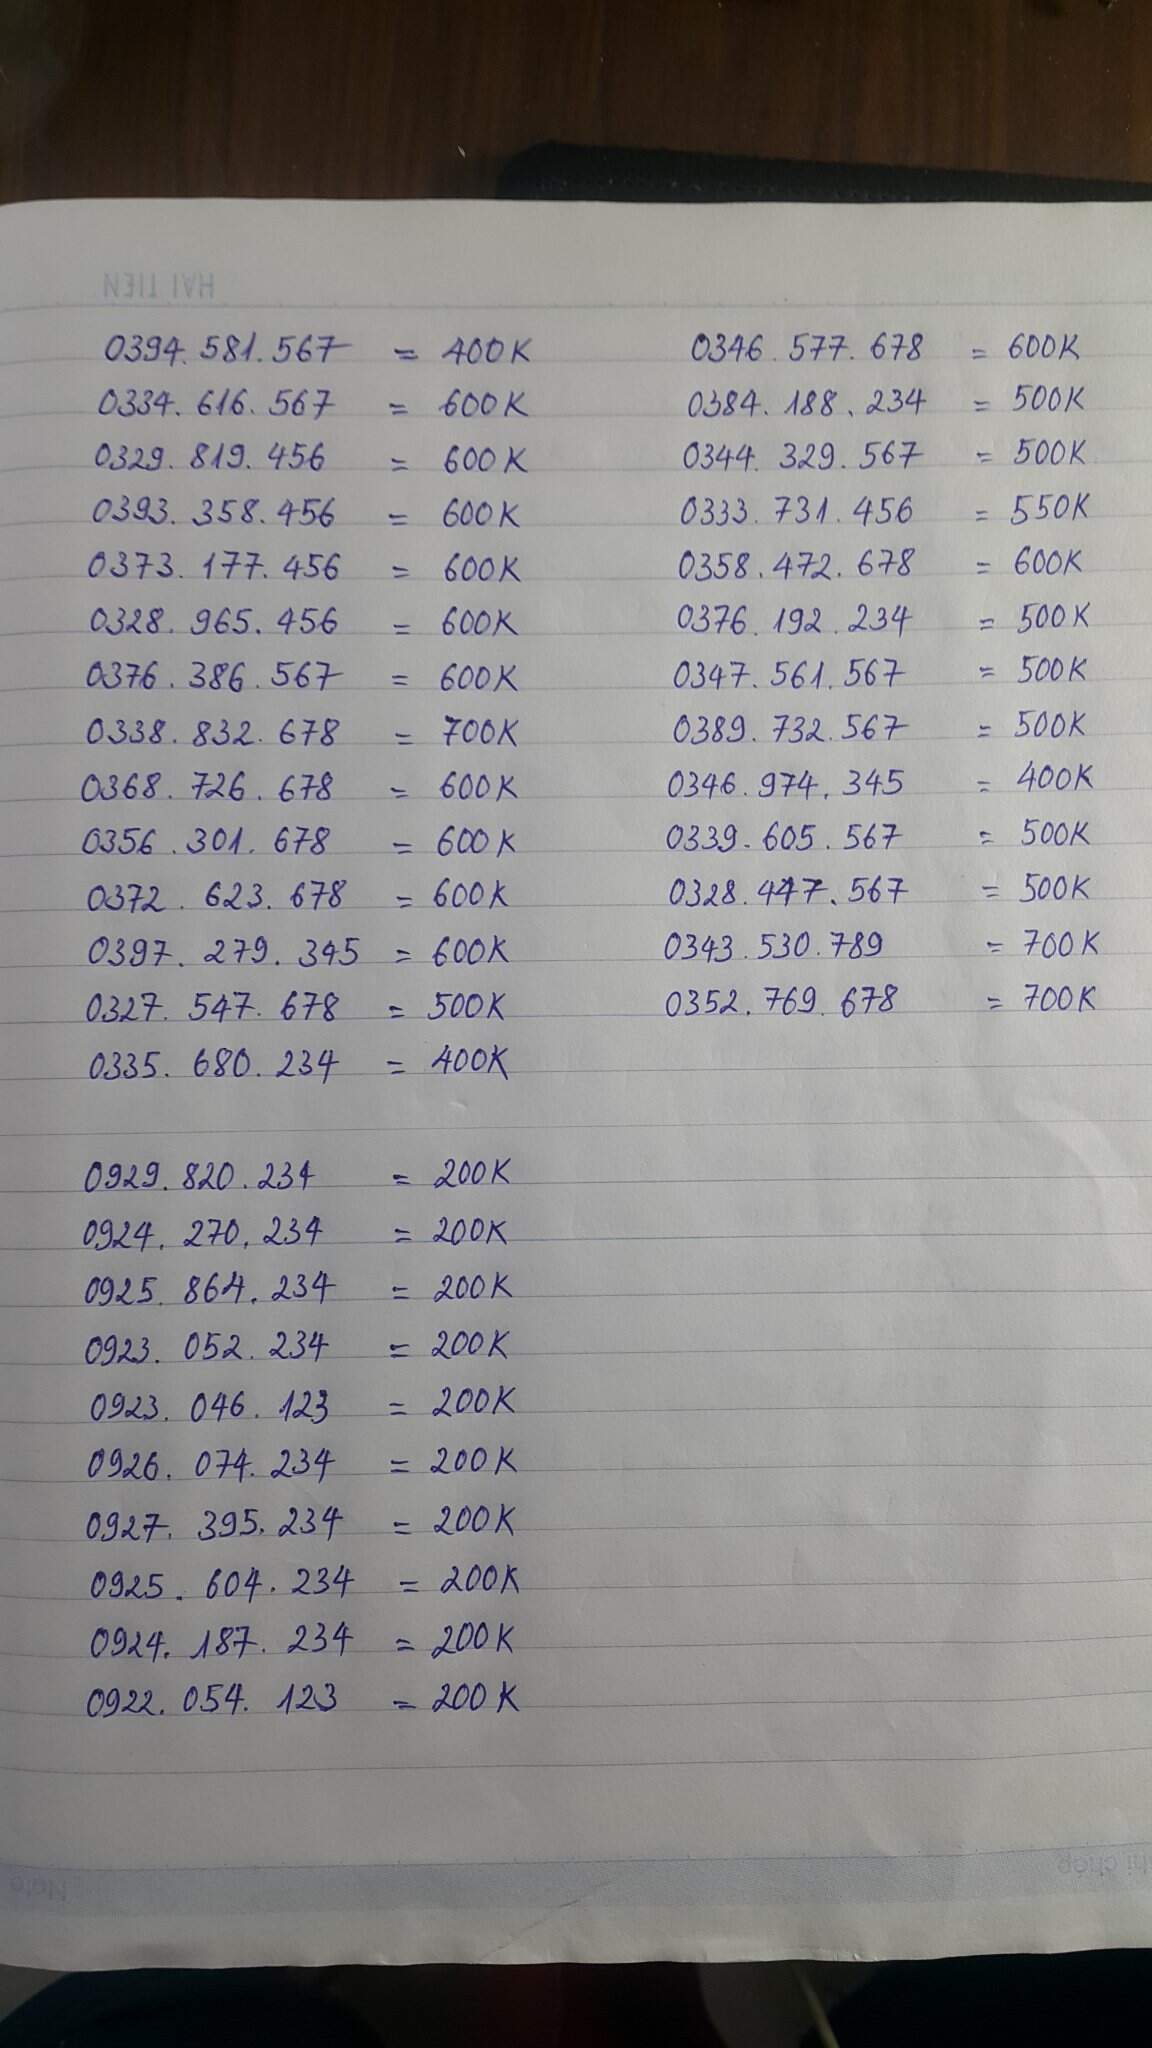 HẢI TIẾN
0394.581.567 = 400K
0334.616.567 = 600K
0329.819.456 = 600K
0393.358.456 = 600K
0373.177.456 = 600K
0328.965.456 = 600K
0376.386.567 = 600K
0338.832.678 = 700K
0368.726.678 = 600K
0356.301.678 = 600K
0372.623.678 = 600K
0397.279.345 = 600K
0327.547.678 = 500K
0335.680.234 = 400K
0346.577.678 = 600K
0384.188.234 = 500K
0344.329.567 = 500K
0333.731.456 = 550K
0358.472.678 = 600K
0376.192.234 = 500K
0347.561.567 = 500K
0389.732.567 = 500K
0346.974.345 = 400K
0339.605.567 = 500K
0328.447.567 = 500K
0343.530.789 = 700K
0352.769.678 = 700K
0929.820.234 = 200K
0924.270.234 = 200K
0925.864.234 = 200K
0923.052.234 = 200K
0923.046.123 = 200K
0926.074.234 = 200K
0927.395.234 = 200K
0925.604.234 = 200K
0924.187.234 = 200K
0922.054.123 = 200K
Note
chép